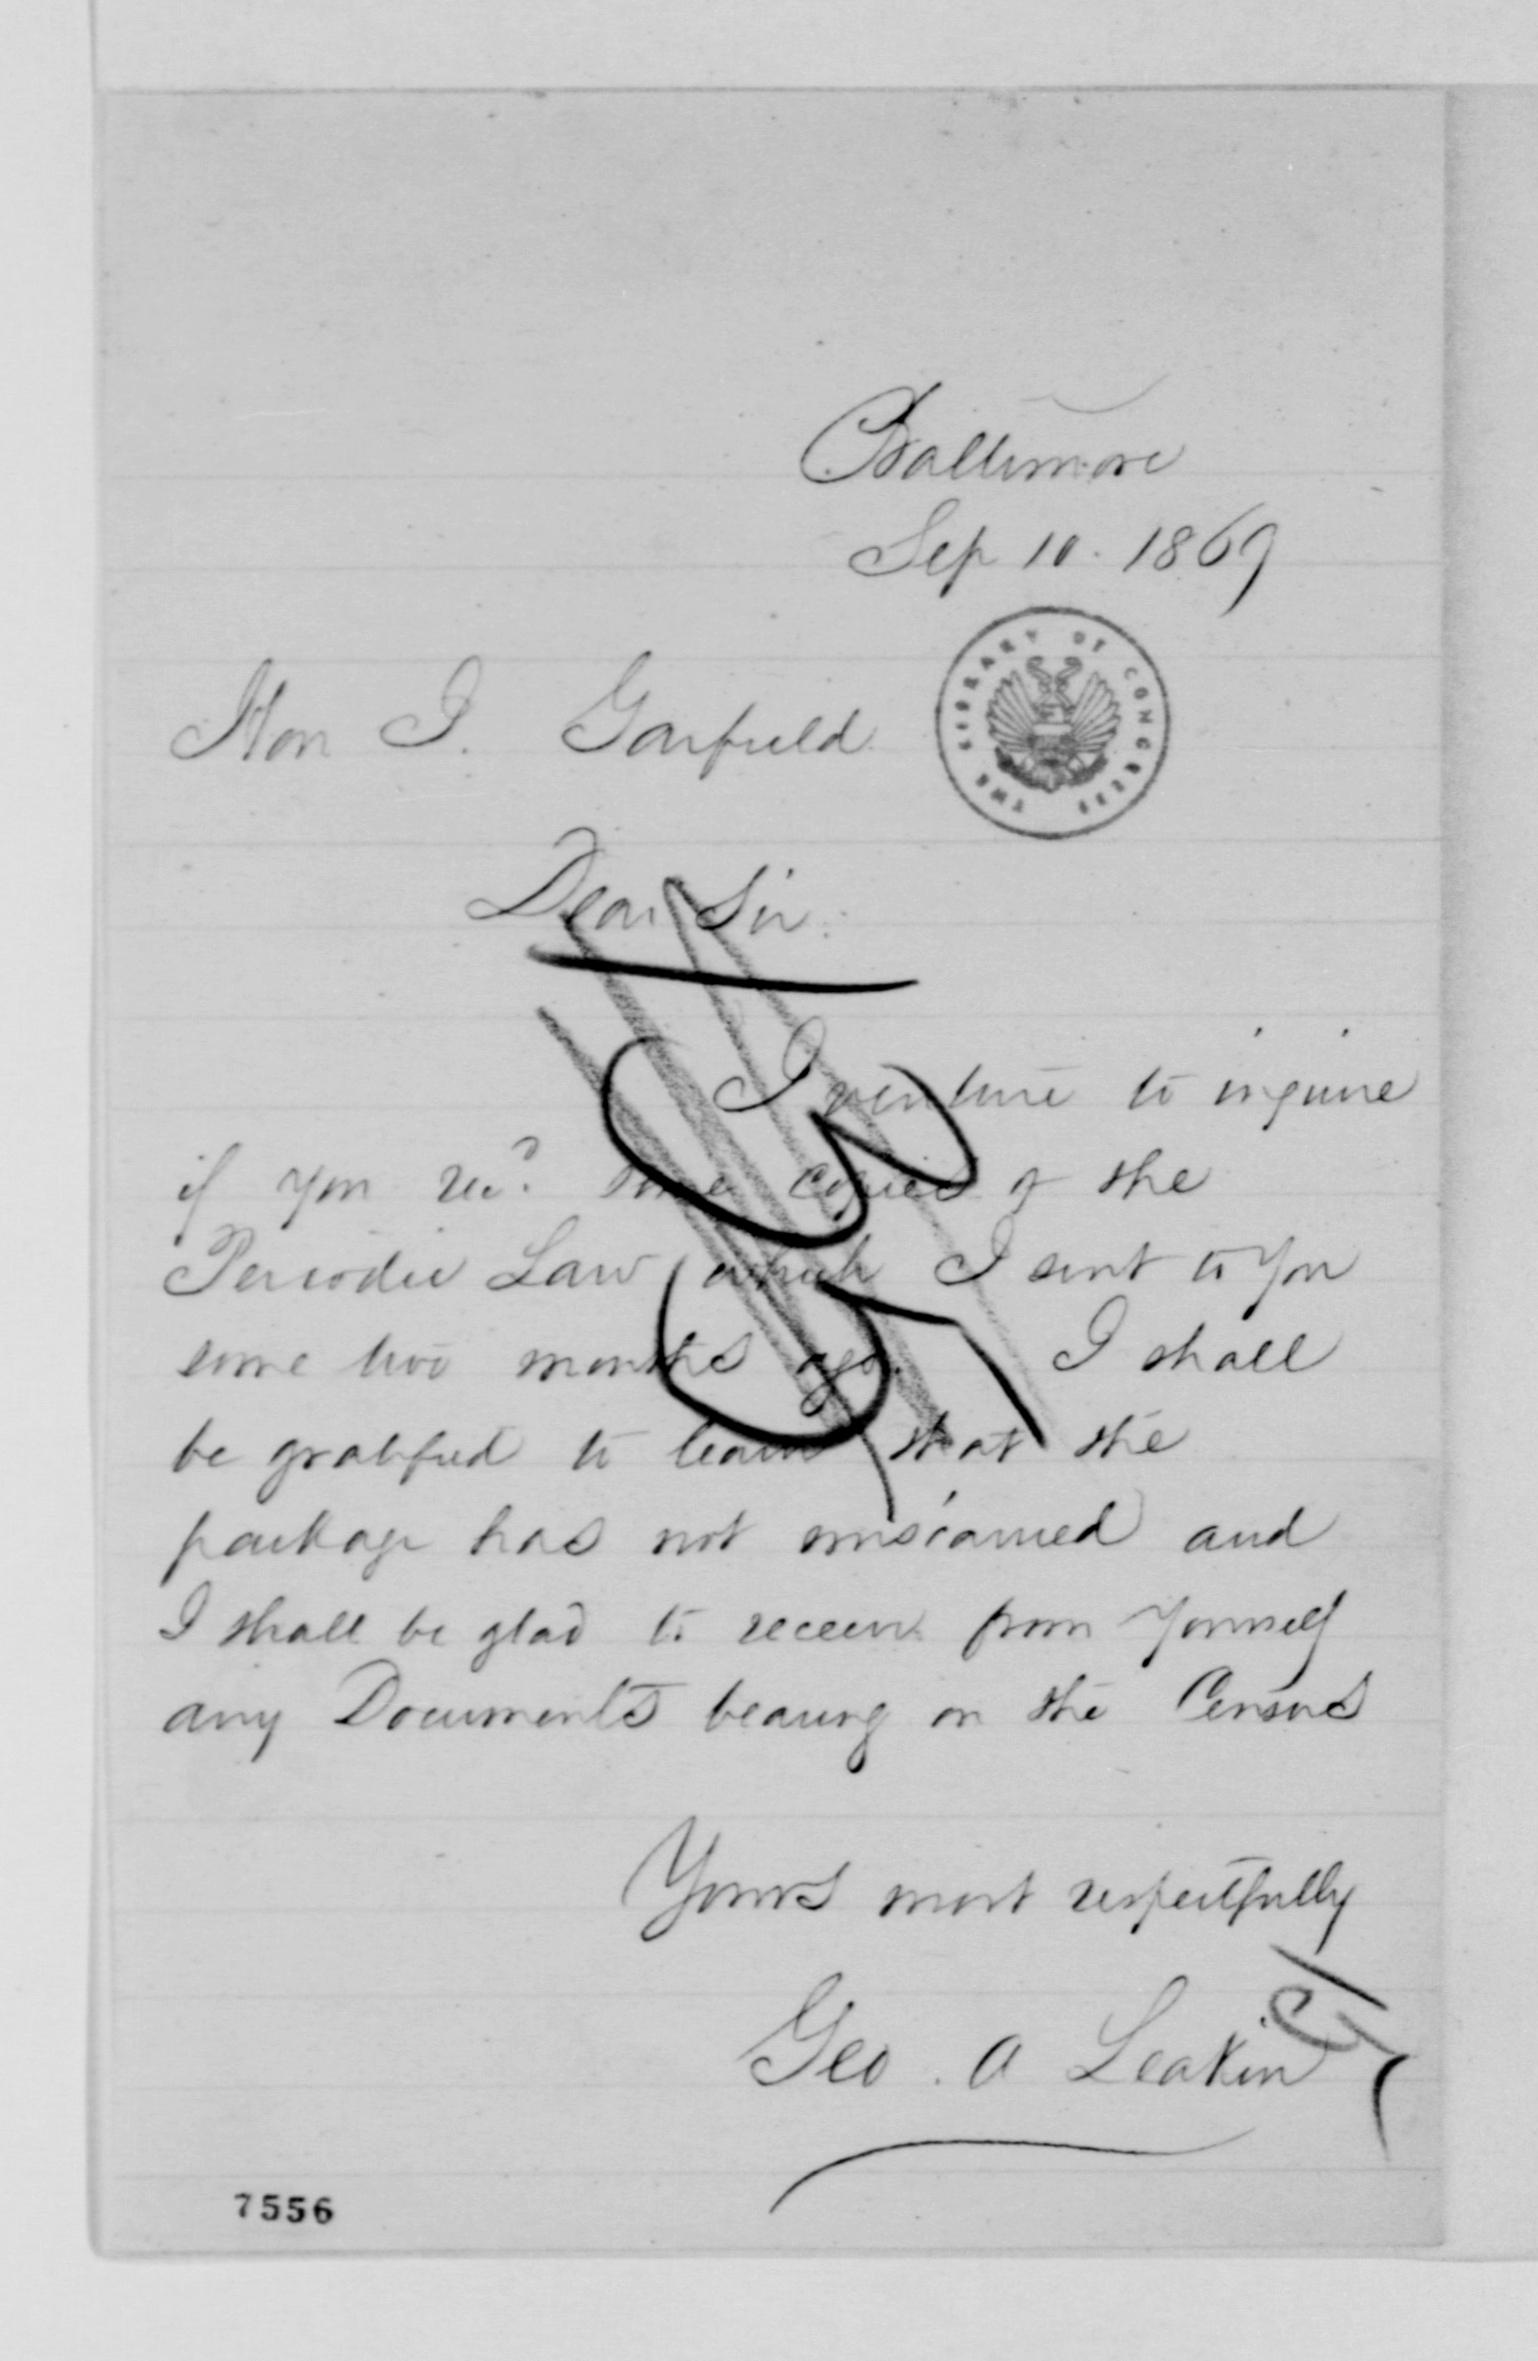 Baltimore
Sep 10. 1869
THE LIBRARY OF CONGRESS
Hon J. Garfield
Dear Sir:
I venture to inquire
if you recd some copies of the
Periodic Law which I sent to you
some two months ago. I shall
be gratified to learn that the
package has not miscarried and
I shall be glad to receive from Yourself
any Documents bearing on the Census
Yours most respectfully
Geo. A Leakin
7556